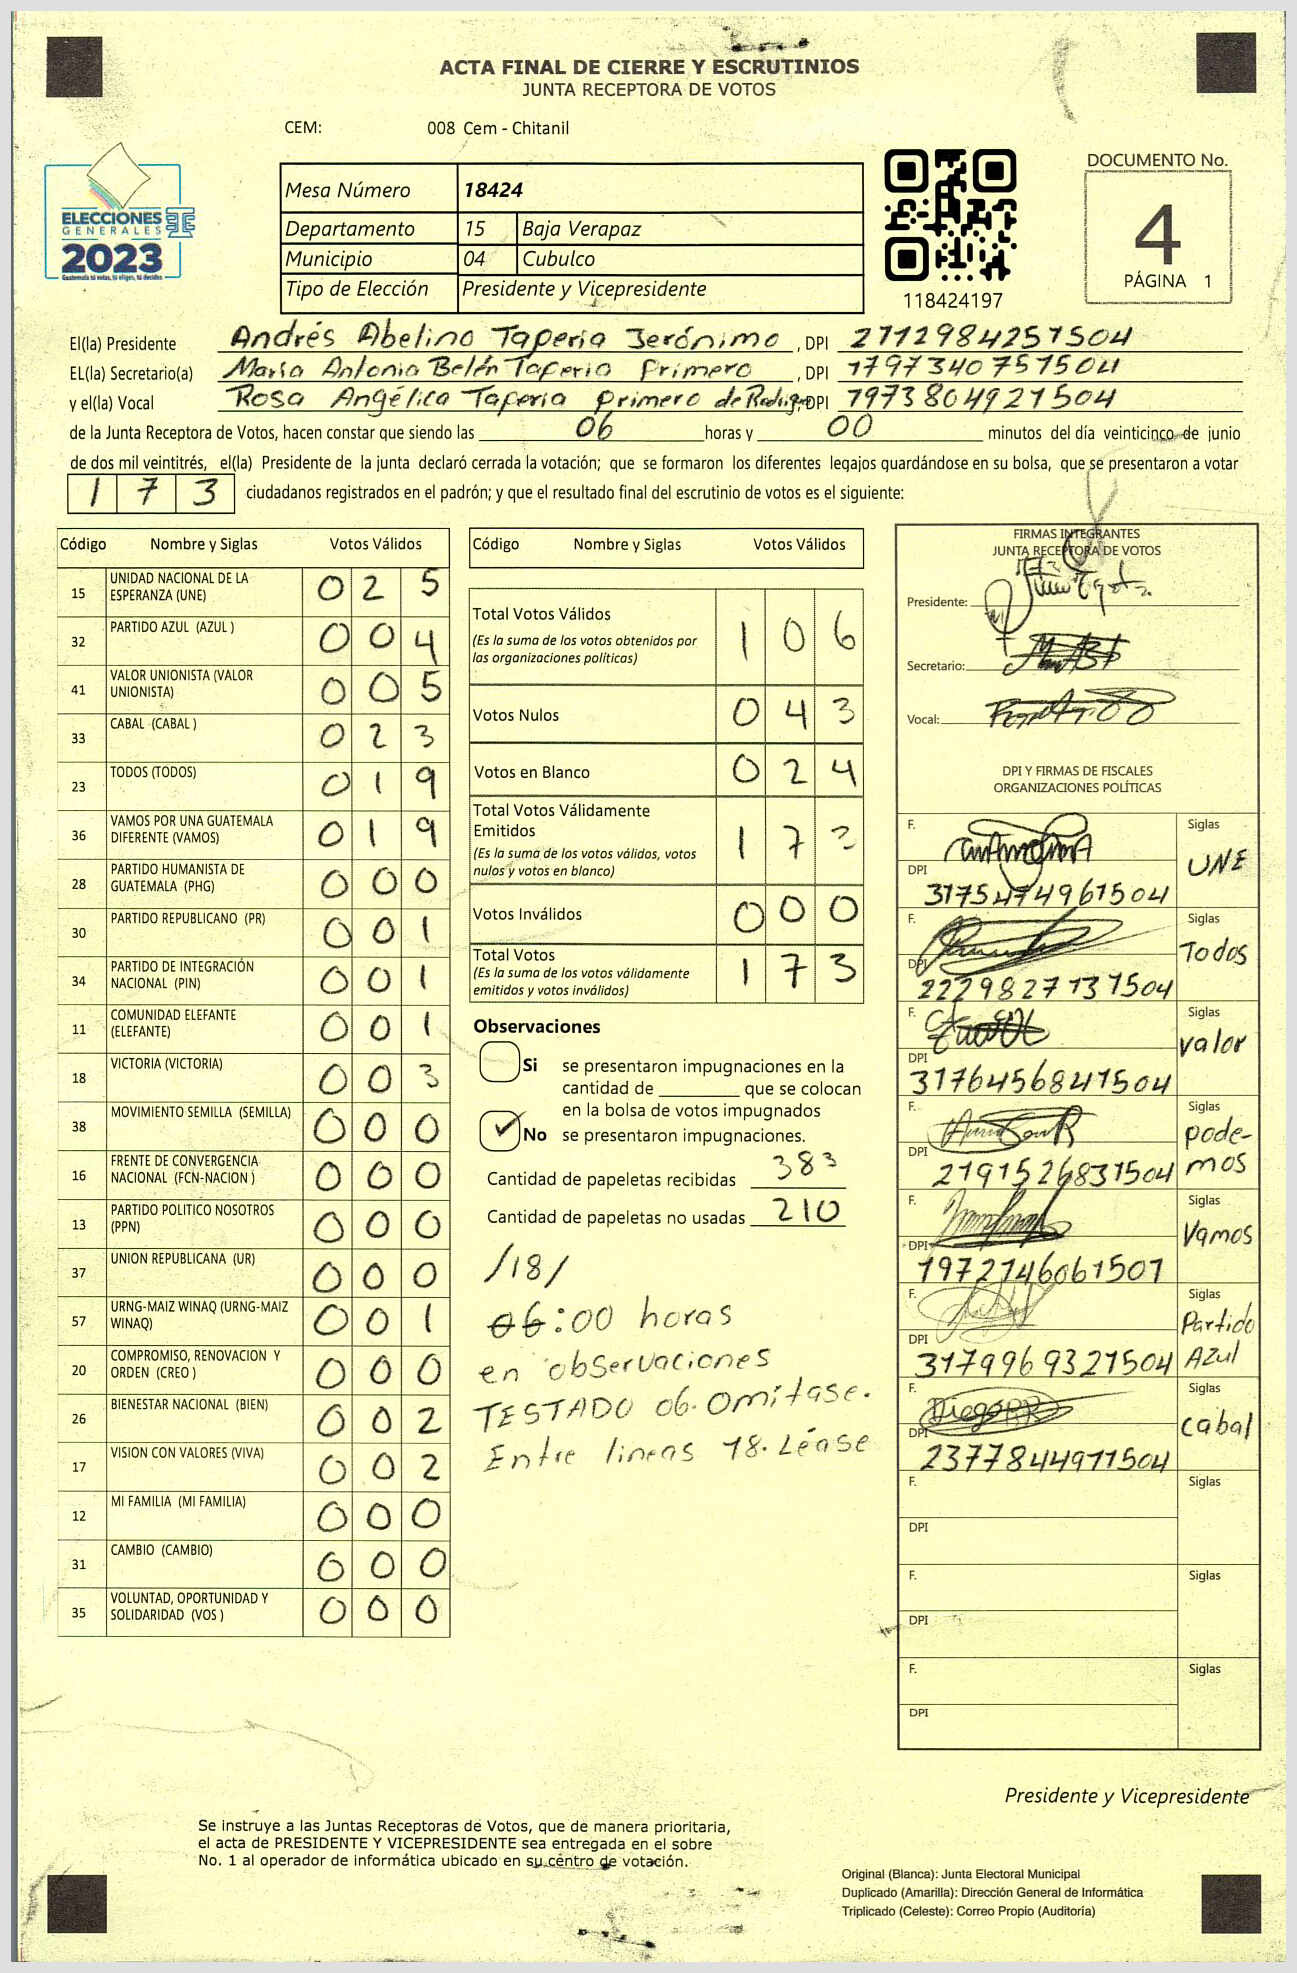 ACTA FINAL DE CIERRE Y ESCRUTINIOS
JUNTA RECEPTORA DE VOTOS
CEM: 008 Cem - Chitanil
ELECCIONES
GENERALES
2023
Guatemala tú votas, tú eliges, tú decides
Mesa Número 18424
Departamento 15 Baja Verapaz
Municipio 04 Cubulco
Tipo de Elección Presidente y Vicepresidente
118424197
DOCUMENTO No.
4
PÁGINA 1
El(la) Presidente Andrés Abelino Taperia Jerónimo, DPI 2712984251504
EL(la) Secretario(a) María Antonia Belén Taperia Primero, DPI 1797340751504
y el(la) Vocal Rosa Angélica Taperia primero de Rodrig, DPI 1973804921504
de la Junta Receptora de Votos, hacen constar que siendo las 06 horas y 00 minutos del día veinticinco de junio
de dos mil veintitrés, el(la) Presidente de la junta declaró cerrada la votación; que se formaron los diferentes legajos guardándose en su bolsa, que se presentaron a votar
1 7 3 ciudadanos registrados en el padrón; y que el resultado final del escrutinio de votos es el siguiente:
Código Nombre y Siglas Votos Válidos
15 UNIDAD NACIONAL DE LA ESPERANZA (UNE) 0 2 5
32 PARTIDO AZUL (AZUL ) 0 0 4
41 VALOR UNIONISTA (VALOR UNIONISTA) 0 0 5
33 CABAL (CABAL ) 0 2 3
23 TODOS (TODOS) 0 1 9
36 VAMOS POR UNA GUATEMALA DIFERENTE (VAMOS) 0 1 9
28 PARTIDO HUMANISTA DE GUATEMALA (PHG) 0 0 0
30 PARTIDO REPUBLICANO (PR) 0 0 1
34 PARTIDO DE INTEGRACIÓN NACIONAL (PIN) 0 0 1
11 COMUNIDAD ELEFANTE (ELEFANTE) 0 0 1
18 VICTORIA (VICTORIA) 0 0 3
38 MOVIMIENTO SEMILLA (SEMILLA) 0 0 0
16 FRENTE DE CONVERGENCIA NACIONAL (FCN-NACION ) 0 0 0
13 PARTIDO POLITICO NOSOTROS (PPN) 0 0 0
37 UNION REPUBLICANA (UR) 0 0 0
57 URNG-MAIZ WINAQ (URNG-MAIZ WINAQ) 0 0 1
20 COMPROMISO, RENOVACION Y ORDEN (CREO ) 0 0 0
26 BIENESTAR NACIONAL (BIEN) 0 0 2
17 VISION CON VALORES (VIVA) 0 0 2
12 MI FAMILIA (MI FAMILIA) 0 0 0
31 CAMBIO (CAMBIO) 0 0 0
35 VOLUNTAD, OPORTUNIDAD Y SOLIDARIDAD (VOS ) 0 0 0
Código Nombre y Siglas Votos Válidos
Total Votos Válidos 1 0 6
(Es la suma de los votos obtenidos por
las organizaciones políticas)
Votos Nulos 0 4 3
Votos en Blanco 0 2 4
Total Votos Válidamente
Emitidos 1 7 3
(Es la suma de los votos válidos, votos
nulos y votos en blanco)
Votos Inválidos 0 0 0
Total Votos 1 7 3
(Es la suma de los votos válidamente
emitidos y votos inválidos)
Observaciones
Si se presentaron impugnaciones en la
cantidad de ________ que se colocan
en la bolsa de votos impugnados
No se presentaron impugnaciones.
Cantidad de papeletas recibidas 383
Cantidad de papeletas no usadas 210
/18/
06:00 horas
en observaciones
TESTADO 06. Omítase.
Entre lineas 18. Léase
FIRMAS INTEGRANTES
JUNTA RECEPTORA DE VOTOS
Presidente:
Secretario:
Vocal:
DPI Y FIRMAS DE FISCALES
ORGANIZACIONES POLÍTICAS
F. Siglas UNE
DPI 3175474961504
F. Siglas Todos
DPI 2229827131504
F. Siglas valor
DPI 3176456841504
F. Siglas pode-
mos
DPI 2191526831504
F. Siglas Vamos
DPI 1972746061501
F. Siglas Partido
Azul
DPI 3179969321504
F. Siglas cabal
DPI 2377844911504
F. Siglas
DPI
F. Siglas
DPI
F. Siglas
DPI
Presidente y Vicepresidente
Se instruye a las Juntas Receptoras de Votos, que de manera prioritaria,
el acta de PRESIDENTE Y VICEPRESIDENTE sea entregada en el sobre
No. 1 al operador de informática ubicado en su centro de votación.
Original (Blanca): Junta Electoral Municipal
Duplicado (Amarilla): Dirección General de Informática
Triplicado (Celeste): Correo Propio (Auditoría)